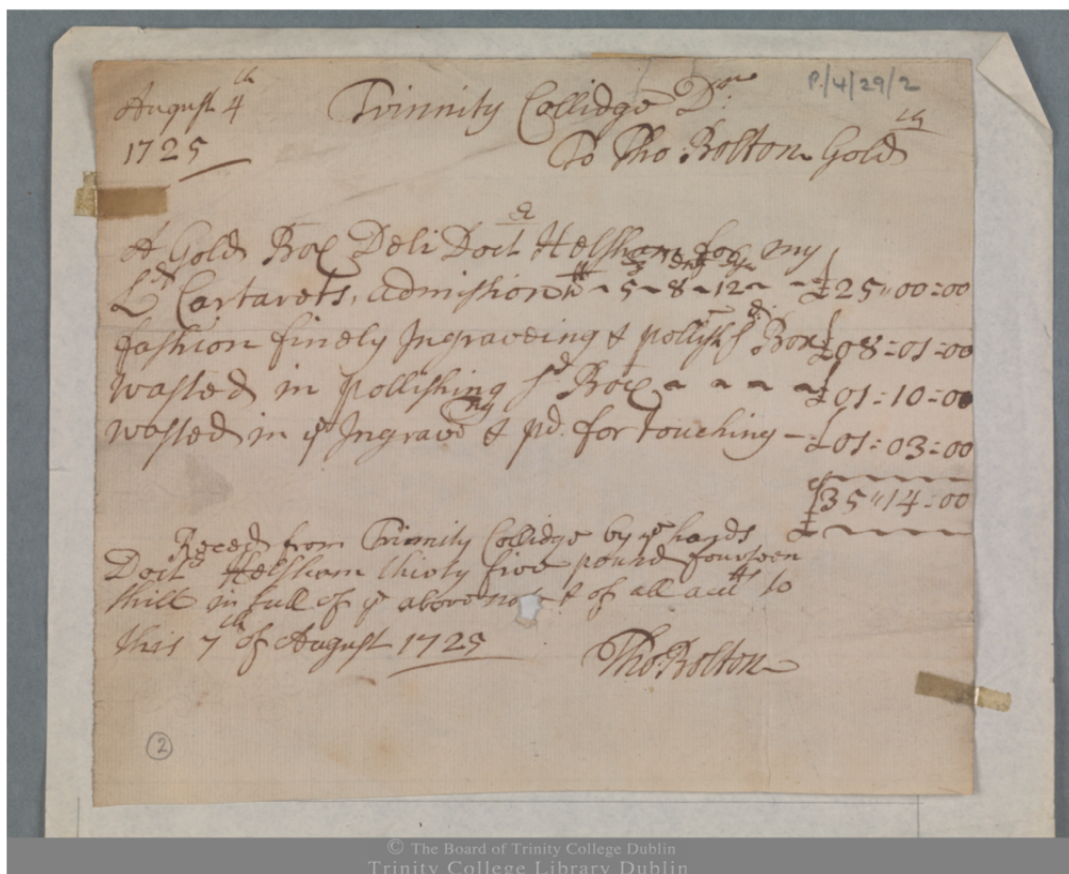 August 4th Trinnity Collidge Dr. P/4/29/2
1725 To Tho: Bolton Gold
A Gold Box Deli Doct Helsham for my
oz dwt gr
Ld Cartarets, admission wt ~ 5 ~ 8 ~ 12 ~ ~ £25"00=00
fashion finely Ingraveing & pollish sd. Box £08-01-00
wasted in pollishing sd Box ~ ~ ~ ~ £01=10=00
wasted in ye Ingraveing & pd. for touching - £01=03=00
£35"14=00
Receed from Trinnity Collidge by ye hands
Doctr Helsham thirty five pound fourteen
shill in full of ye above & of all actts to
this 7th of August 1725
Tho: Bolton
2
© The Board of Trinity College Dublin
Trinity College Library Dublin